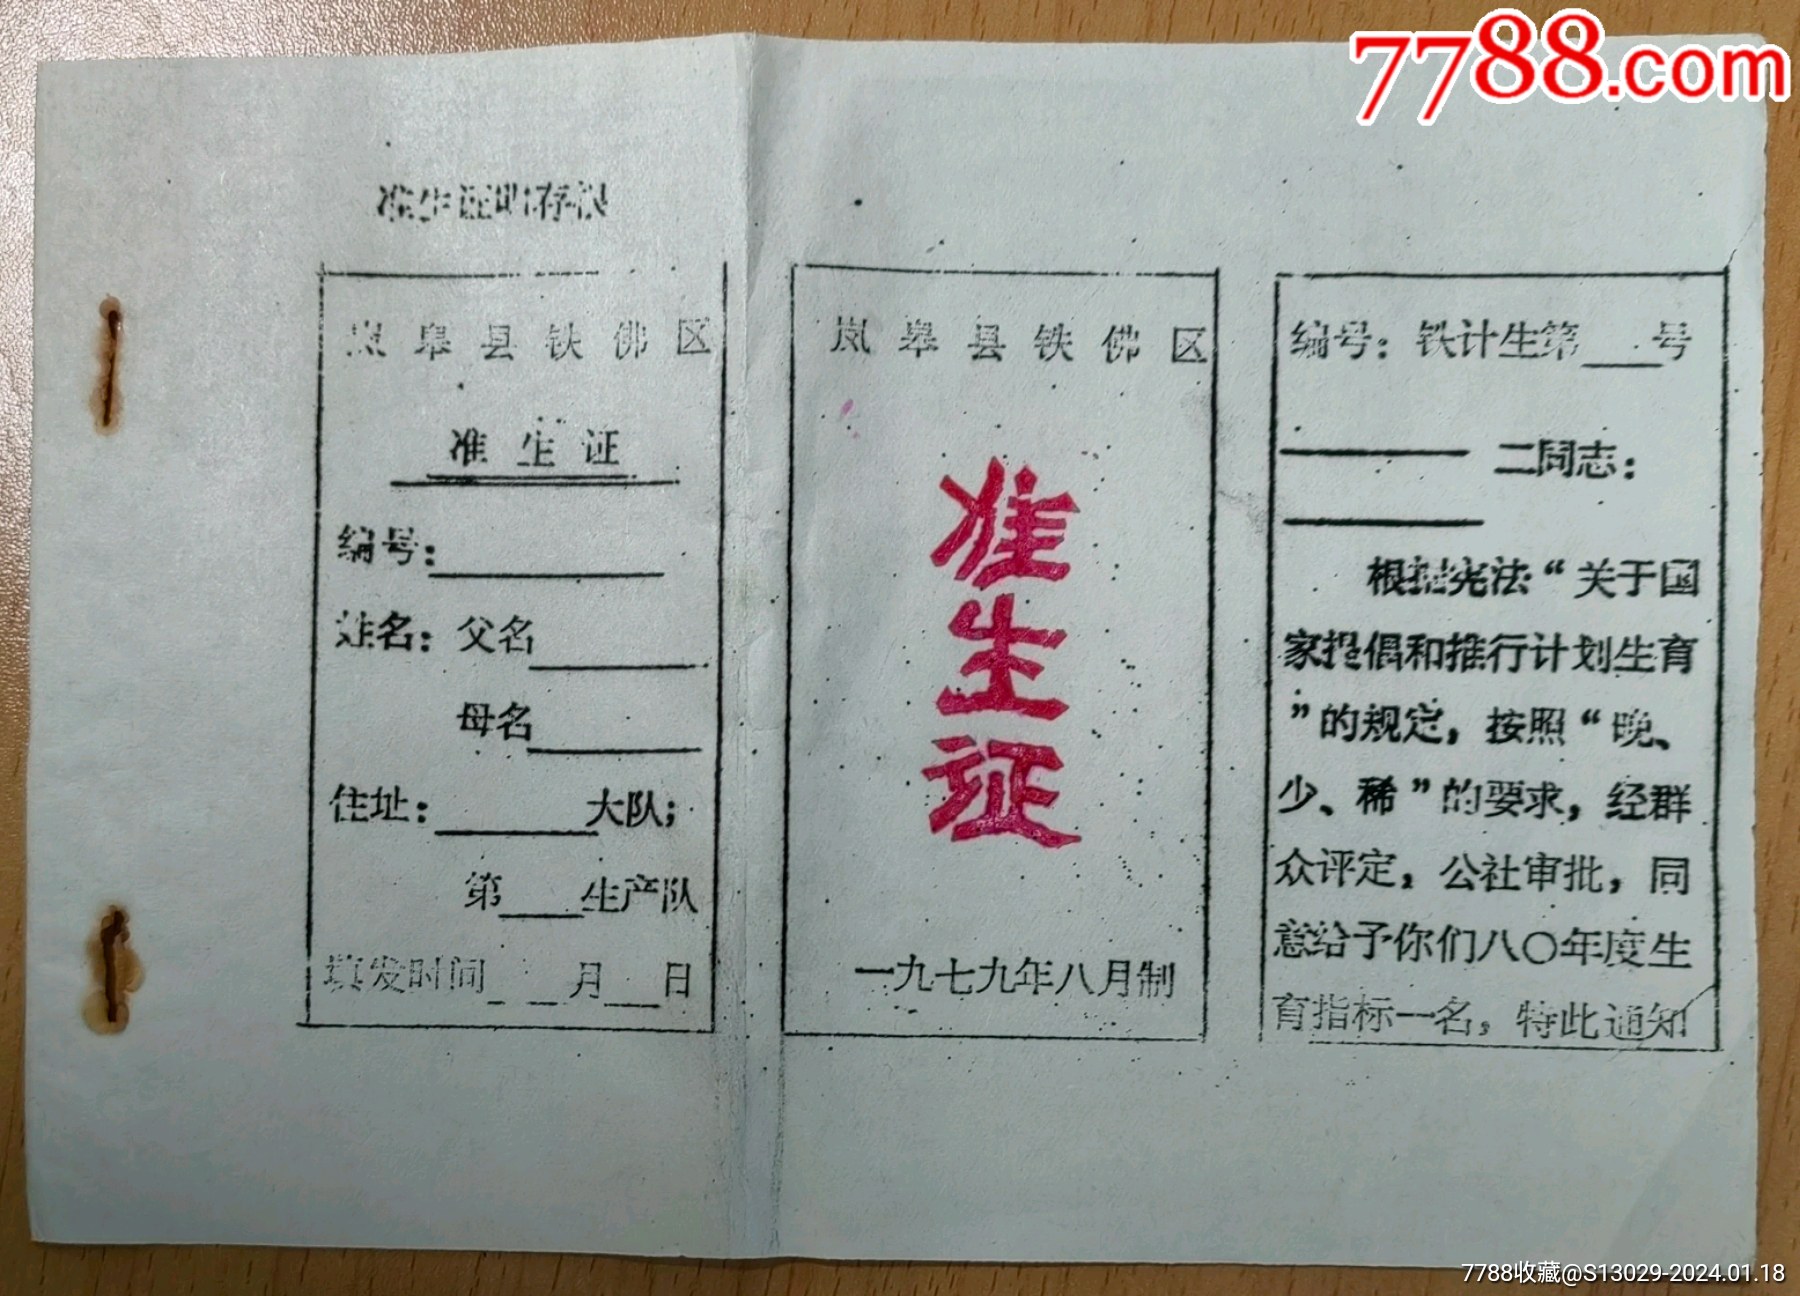 7788.com
准生证明存根
岚皋县铁佛区
准生证
编号：
姓名：父名
母名
住址：大队；
第生产队
填发时间 月 日
岚皋县铁佛区
准
生
证
一九七九年八月制
编号：铁计生第 号
二同志：
根据宪法“关于国
家提倡和推行计划生育
”的规定，按照“晚、
少、稀”的要求，经群
众评定，公社审批，同
意给予你们八〇年度生
育指标一名，特此通知
7788收藏@S13029-2024.01.18